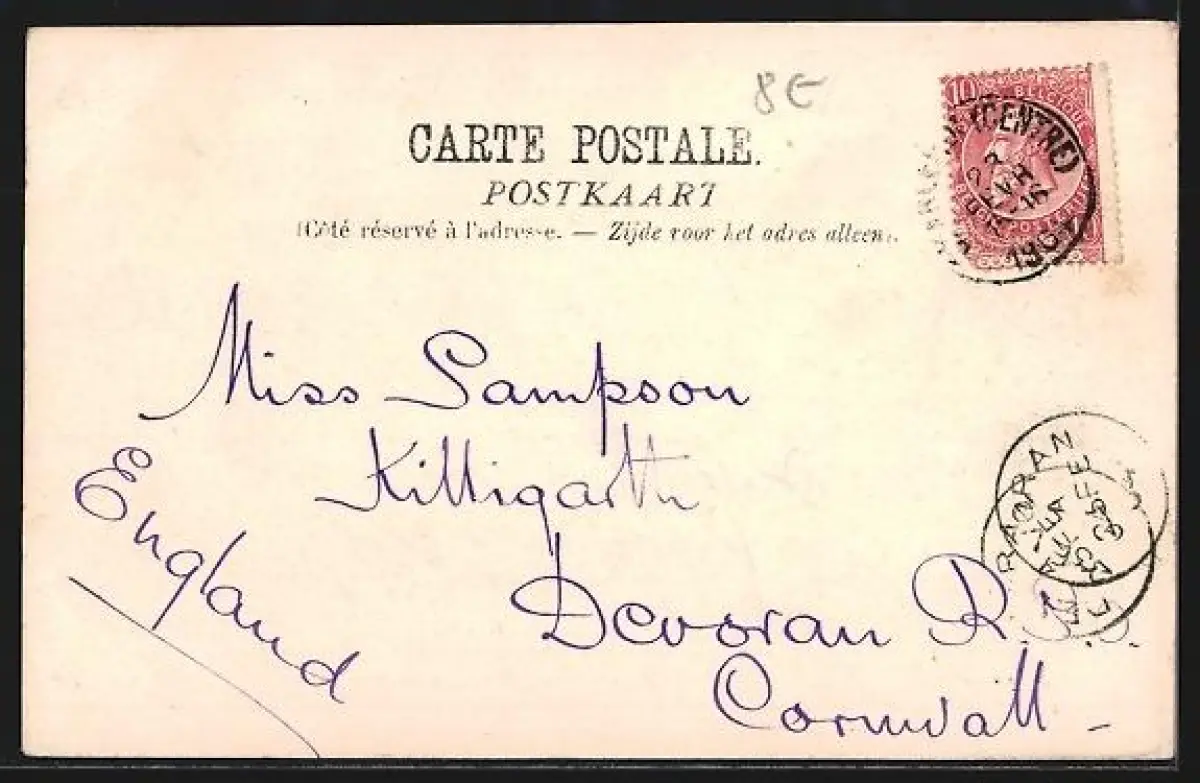 8€
CARTE POSTALE.
POSTKAART
(Côté réservé à l'adresse. — Zijde voor het adres alleen).
10
BELGIQUE
(CENTRE)
1904
Miss Sampson
Killigarth
Devoran R.S.
Cornwall -
England